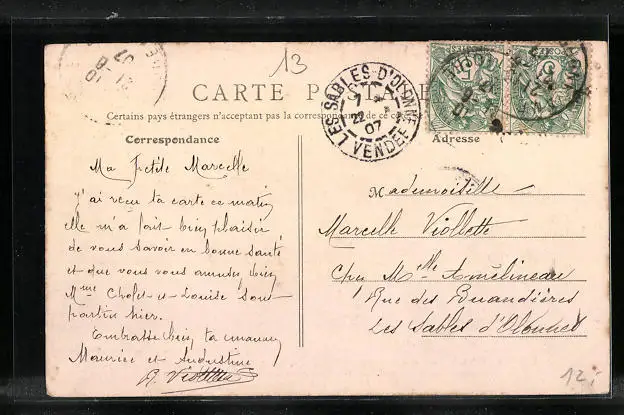 13
CARTE POSTALE
Certains pays étrangers n'acceptent pas la correspondance de ce côté
Correspondance
Ma Petite Marcelle
J'ai reçu ta carte ce matin
elle m'a fait bien plaisir
de vous savoir en bonne santé
et que vous vous amusez bien
Mme Cholet et Louise sont
partis hier.
Embrasse bien ta maman
Maurice et Augustine
Viollette
LES SABLES-D'OLONNE
7
22
07
VENDÉE
Adresse
Mademoiselle
Marcelle Viollette
Chez Mme Amélineau
Rue des
Les Sables d'Olonne
12,-